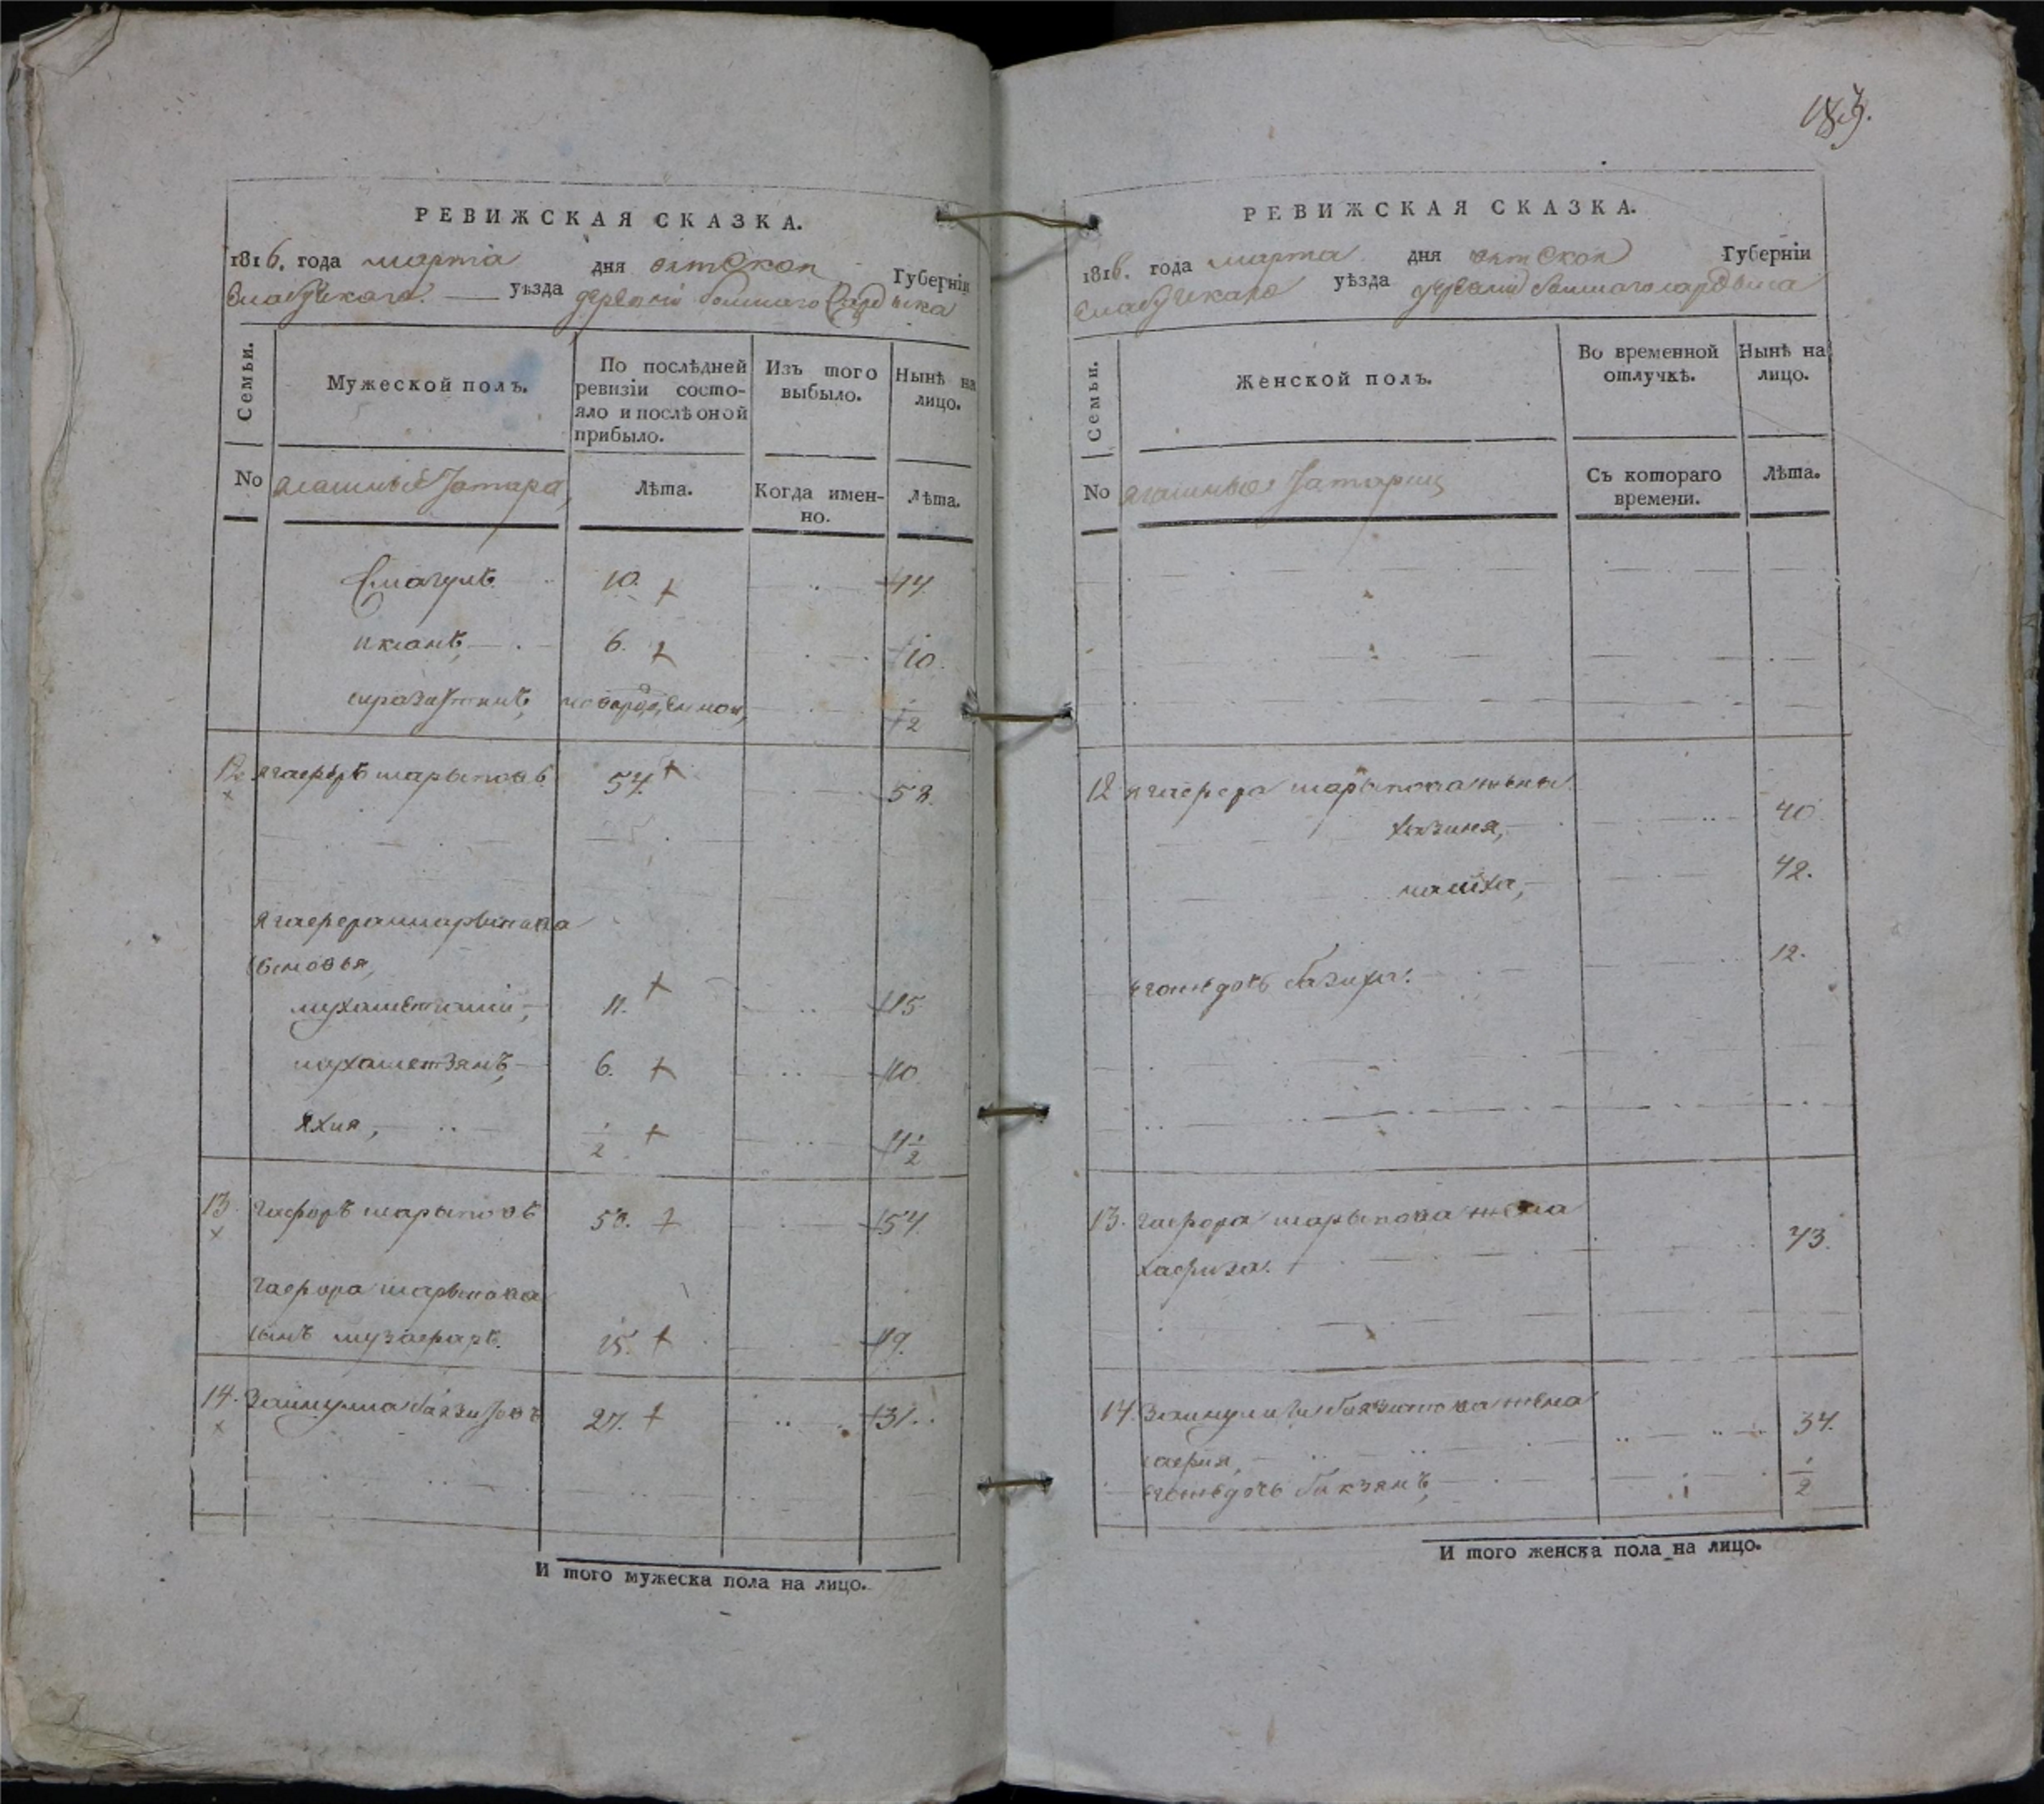 РЕВИЖСКАЯ СКАЗКА.
1816. года марта дня вятской Губерніи
Елабужскаго уѣзда деревни большаго
Семьи.
Мужеской полъ.
По послѣдней ревизіи состо-
яло и послѣ оной
прибыло.
Изъ того
выбыло.
Нынѣ на
лицо.
No ясашные Татара,
Лѣта.
Когда имен-
но.
Лѣта.
Смагилъ 10. 14.
6. 10.
новорожденной, 1/2
12 Ягаферъ шарыповъ 54. 58.
Ягафера шарыпова
сыновья,
11. 15
мухаметзянъ, 6. 10.
Яхия, 1/2 4 1/2
13. Гафоръ шарыповъ 50. 54.
Гафора шарыпова
сынъ музафаръ. 15. 19.
14. Зайнулла баязитовъ 27. 31.
И того мужеска пола на лицо.
183.
РЕВИЖСКАЯ СКАЗКА.
1816. года марта дня вятской Губерніи
Елабужскаго уѣзда деревни большаго
Семьи.
Женской полъ.
Во временной
отлучкѣ.
Нынѣ на
лицо.
No ясашные Татарки
Съ котораго
времени.
Лѣта.
12 Ягафера шарыпова жены
40.
42.
его дочь 12.
13. Гафора шарыпова жена
хафиза. 43.
14. Зайнуллы баязитова жена
сафия, 34.
дочь 1/2
И того женска пола на лицо.